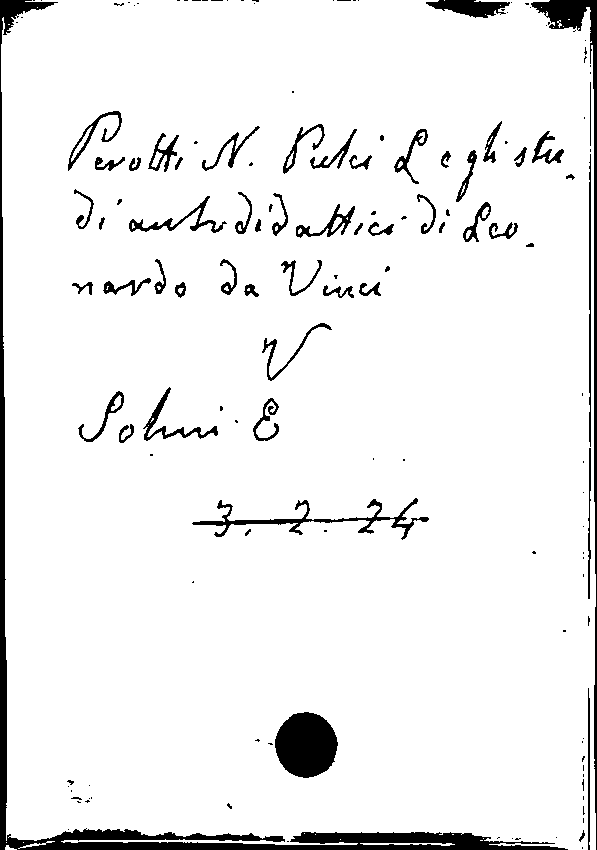 Perotti N. Pulci L e gli stu-
di autodidattici di Leo-
nardo da Vinci
V
Solmi E
3. 2. 24